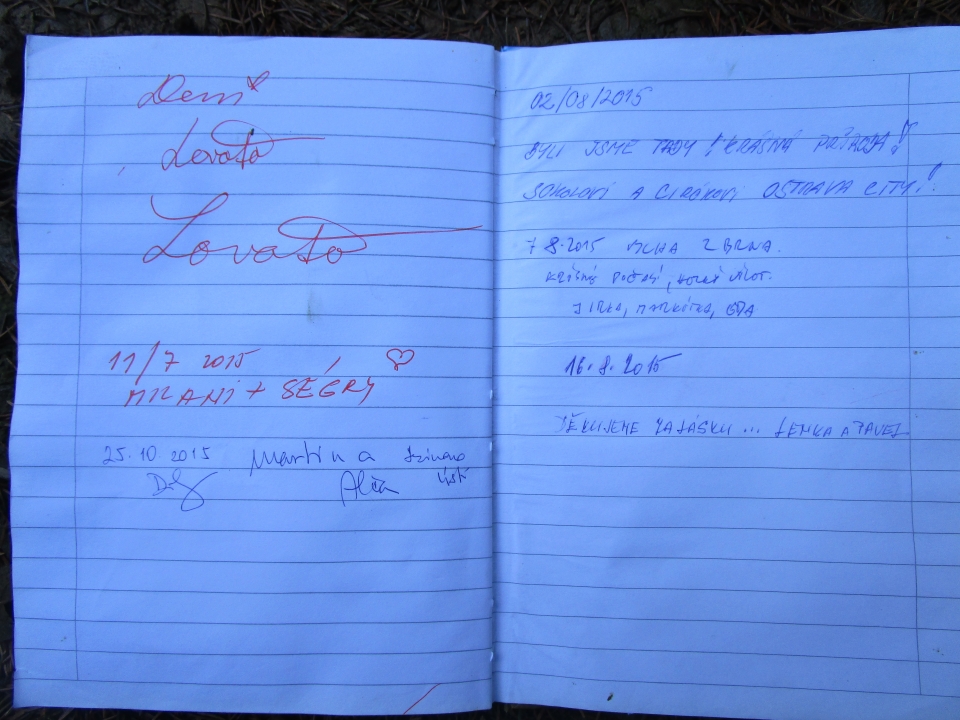 Demi
Lovato
Lovato
11/7 2015
MILANI + SÉGRY
25.10.2015 Martin a
Alča Ústí
02/08/2015
BYLI JSME TADY! KRÁSNÁ PŘÍRODA!!
SOKOLOVI A OSTRAVA CITY!!
7 8.2015 Z BRNA.
KRÁSNÉ POČASÍ,
JIRKA, MARKÉTKA,
16.8.2015
DĚKUJEME ZA LÁSKU... LENKA A PAVEL